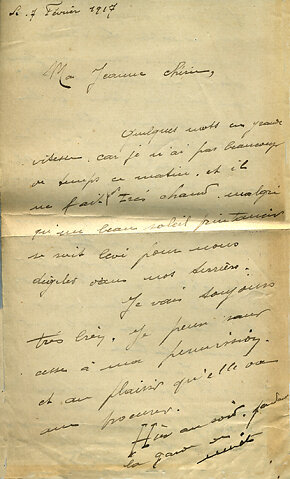 Le 7 Février 1917
Ma Jeanne chérie,
Quelques mots en grande
vitesse, car je n'ai pas beaucoup
de temps ce matin, et il
ne fait très chaud, malgré
qu'un beau soleil printanier
se soit levé pour nous
dégeler dans nos
Je vais toujours
très bien. Je pense sans
cesse à ma permission,
et au plaisir qu'elle va
me procurer.
Hier au soir,
la garde